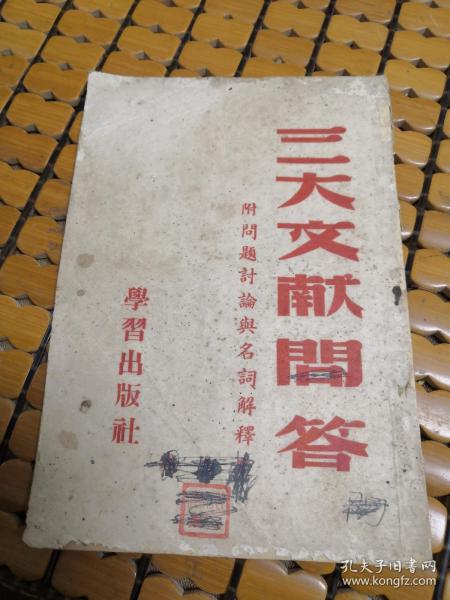 三大文献問答
附問題討論與名詞解釋
學習出版社
孔夫子旧书网
www.kongfz.com